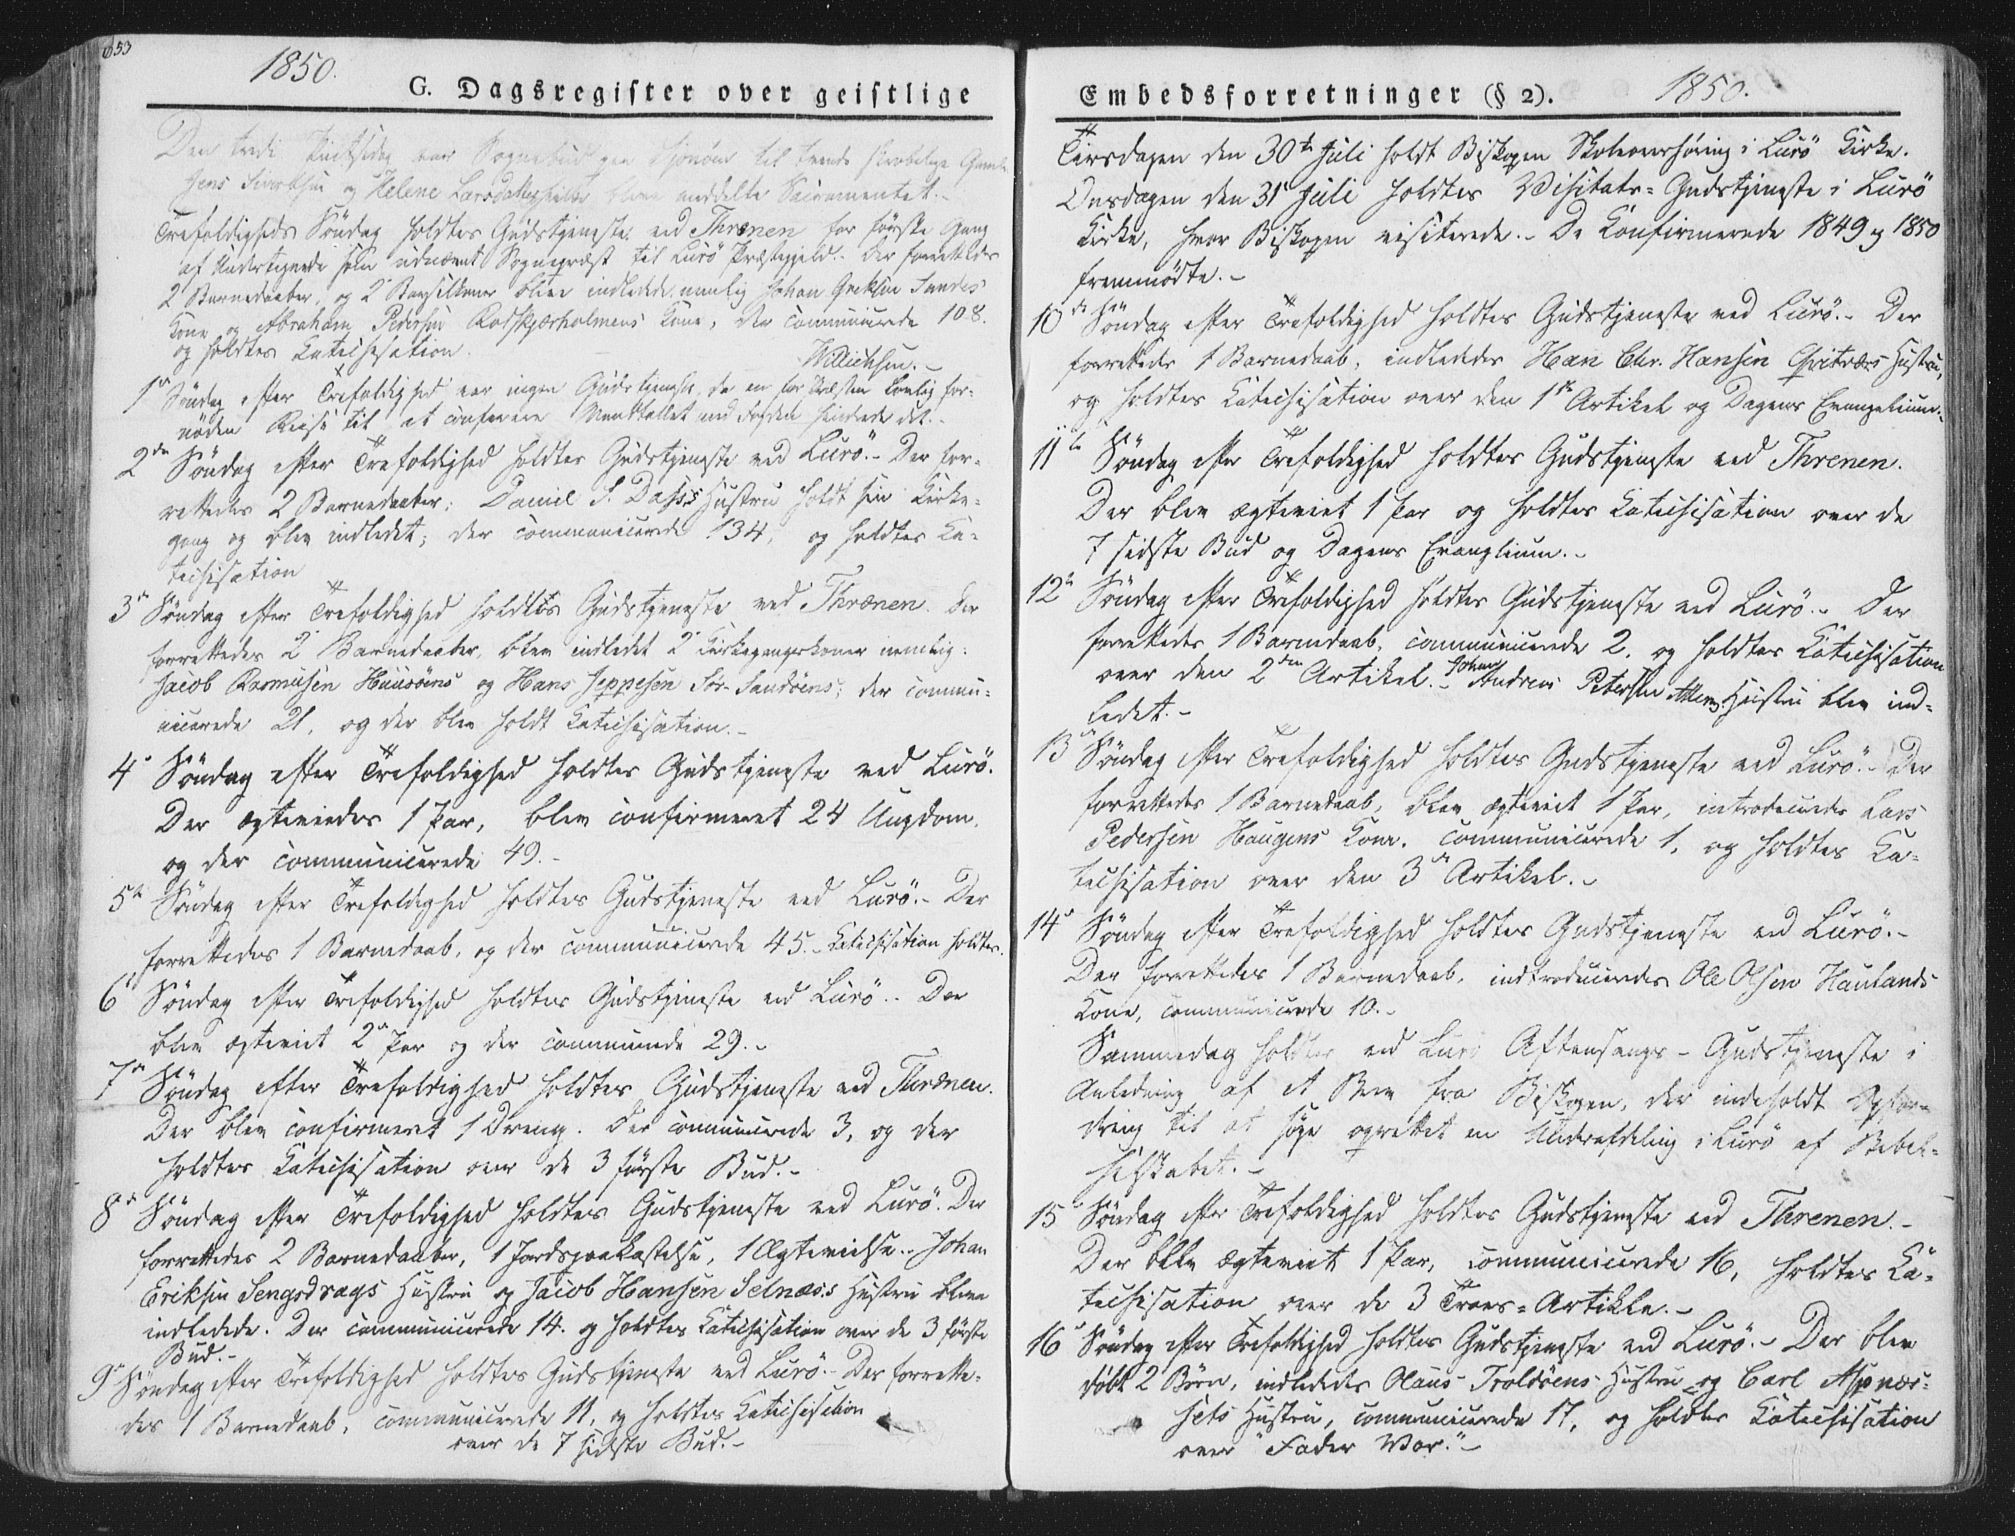 653
1850.
G. Dagsregister over geistlige
Den tredi Pintsedag var Sognebud paa til trende skrøbelige Gamle
Jens Sivertsen og Helene Larsdatter blev meddelte Sacramentet.-
Trefoldigheds Søndag holdtes Gudstjeneste ved Thrænen for første Gang
af Undertegnede som udnævnt Sognepræst til Lurö Præstegjeld.- Der forrettedes
2 Barnedaaber, og 2 Barselkoner bleve indledede, nemlig Johan Sandes
Kone og Abraham Pedersen Rødskjærholmens Kone, der communicerede 108.
og holdtes Catechisation.
1ste Søndag efter Trefoldighed var ingen Gudstjeneste, da en for Præsten lovlig for-
nöden Reise til at conferere Manktallet med Fogden hindrede det.-
2den Søndag efter Trefoldighed holdtes Gudstjeneste ved Lurö.- Der for-
rettedes 2 Barnedaaber; Daniel S. Dahss Hustru holdt sin Kirke-
gang og blev indledet; der communicerede 134, og holdtes Ca-
techisation
3die Søndag efter Trefoldighed holdtes Gudstjeneste ved Thrænen. Der
forrettedes 2 Barnedaaber, blev indledet 2 Kirkegangskoner nemlig:
Jacob Rasmusen Huusöens og Hans Jeppesen Sör-Sandöens; der commu-
nicerede 21, og der blev holdt Catechisation.-
4de Søndag efter Trefoldighed holdtes Gudstjeneste ved Lurö.
Der ægteviedes 1 Par, blev confirmeret 24 Ungdom.
og der communicerede 49.-
5te Søndag efter Trefoldighed holdtes Gudstjeneste ved Lurö.- Der
forrettedes 1 Barnedaab, og der communicerede 45.- Catechisation holdtes.
6te Søndag efter Trefoldighed holdtes Gudstjeneste ved Lurö.- Der
blev ægteviet 2 Par og der communicerede 29.-
7de Søndag efter Trefoldighed holdtes Gudstjeneste ved Thrænen.
Der blev confirmeret 1 Dreng. Der communicerede 3, og der
holdtes Catechisation over de 3 første Bud.-
8de Søndag efter Trefoldighed holdtes Gudstjeneste ved Lurö. Der
forrettedes 2 Barnedaaber, 1 Jordspaakastelse, 1 Ægtevielse.- Johan
Eriksen Sengsdrags Hustru og Jacob Hansen Selnæss Hustru bleve
indledede. Der communicerede 14. og holdtes Catechisation over de 3 første
Bud.-
9de Søndag efter Trefoldighed holdtes Gudstjeneste ved Lurö.- Der forrette-
des 1 Barnedaab, communicerede 11, og holdtes Catechisation
over de 7 sidste Bud.-
Embedsforretninger (§ 2).
1850.
Tirsdagen den 30te Juli holdt Biskopen Skoleoverhøring i Lurö Kirke.
Onsdagen den 31 Juli holdtes Visitats=Gudstjeneste i Lurö
Kirke, hvor Biskopen visiterede.- De Confirmerede 1849 og 1850
fremmødte.-
10de Søndag efter Trefoldighed holdtes Gudstjeneste ved Lurö.- Der
forrettedes 1 Barnedaab, indledes Han Chr. Hansen Qvitværs Hustru,
og holdtes Catechisation over den 1ste Artikel og Dagens Evangelium.-
11te Søndag efter Trefoldighed holdtes Gudstjeneste ved Threnen.
Der blev ægteviet 1 Par og holdtes Catechisation over de
7 sidste Bud og Dagens Evanglium.-
12te Søndag efter Trefoldighed holdtes Gudstjeneste ved Lurö.- Der
forrettedes 1 Barnedaab, communicerede 2. og holdtes Catechisation
over den 2den Artikel.- Johan Andreas Petersen Hustru blev ind-
ledet.-
13de Søndag efter Trefoldighed holdtes Gudstjeneste ved Lurö.- Der
forrettedes 1 Barnedaab, blev ægteviet 1 Par, introduceredes Lars
Pedersen Haugens Kone. communicerede 1, og holdtes Ca-
techisation over den 3die Artikel.-
14de Søndag efter Trefoldighed holdtes Gudstjeneste ved Lurö.-
Der forrettedes 1 Barnedaab, indtroduceredes Ole Olsen Haulands
Kone, communicerede 10.-
Sammedag holdtes ved Lurö Aftensangs-Gudstjeneste i
Anledning af et Brev fra Biskopen, der indeholdt Opfor-
dring til at søge oprettet en Underafdeling i Lurö af Bibel-
selskabet.-
15de Søndag efter Trefoldighed holdtes Gudstjeneste ved Threnen.-
Der blev ægteviet 1 Par, communicerede 16, holdtes Ca-
techisation over de 3 Troes=Artikle.-
16de Søndag efter Trefoldighed holdtes Gudstjeneste ved Lurö.- Der blev
døbt 2 Børn, indledes Olaus Troldöens Hustru og Carl Aspnes-
sets Hustru, communicerede 17, og holdtes Catechisation
over "Fader Vor."-